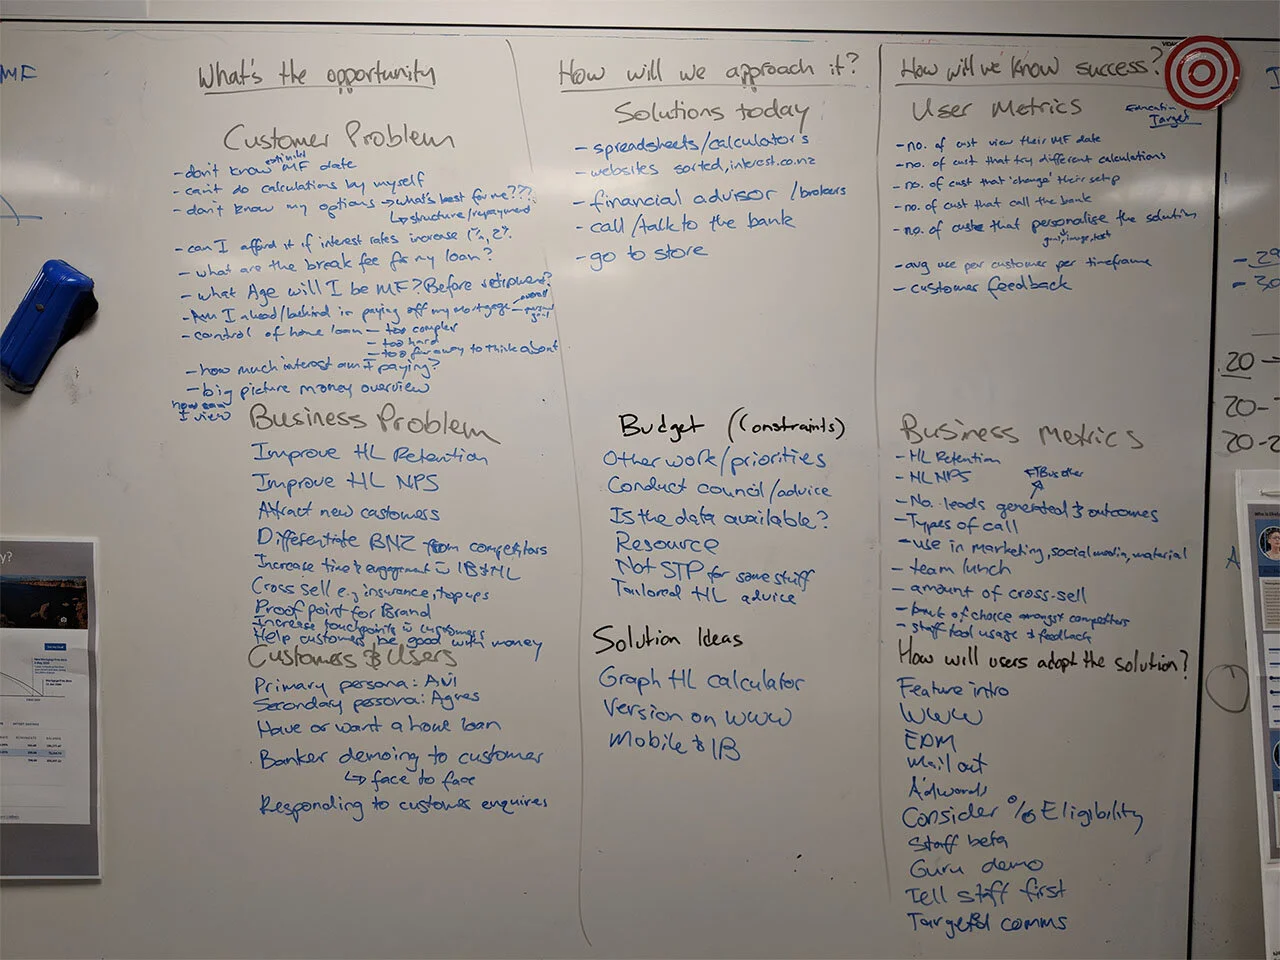 What's the opportunity
Customer Problem
- don't know estimated MF date
- can't do calculations by myself
- don't know my options → what's best for me???
↳ structure/repayment
- can I afford it if interest rates increase 1%, 2%
- what are the break fee for my loan?
- what Age will I be MF? Before retirement?
- Am I ahead/behind in paying off my mortgage - overall
- control of home loan - too complex
- too hard
- too far away to think about
- how much interest am I paying?
- big picture money overview
how can I view
Business Problem
Improve HL Retention
Improve HL NPS
Attract new customers
Differentiate BNZ from competitors
Increase time & engagement in IB & HL
Cross sell e.g insurance, topups
Proof point for Brand
Increase touchpoints w customers
Help customers be good with money
Customers & Users
Primary persona: AVI
Secondary persona: Agnes
Have or want a home loan
Banker demoing to customer
↳ face to face
Responding to customer enquires
How will we approach it?
Solutions today
- spreadsheets/calculators
- websites sorted, interest.co.nz
- financial advisor /brokers
- call/talk to the bank
- go to store
Budget (Constraints)
Other work/priorities
Conduct council/advice
Is the data available?
Resource
Not STP for some stuff
Tailored HL advice
Solution Ideas
Graph HL calculator
Version on WWW
Mobile & IB
How will we know success?
User Metrics
Target
- no. of cust view their MF date
- no. of cust that try different calculations
- no. of cust that 'change' their setup
- no. of cust that call the bank
- no. of custs that personalise the solution
goal, image, text
- avg use per customer per timeframe
- customer feedback
Business Metrics
- HL Retention
- HL NPS
- No. leads generated & outcomes
- Types of call
- use in marketing, social media, material
- team lunch
- amount of cross-sell
- bank of choice amongst competitors
- staff tool usage & feedback
How will users adopt the solution?
Feature intro
WWW
EDM
Mail out
Adwords
Consider % Eligibility
Staff beta
Guru demo
Tell staff first
Targeted comms
MF
20
20-
20-2